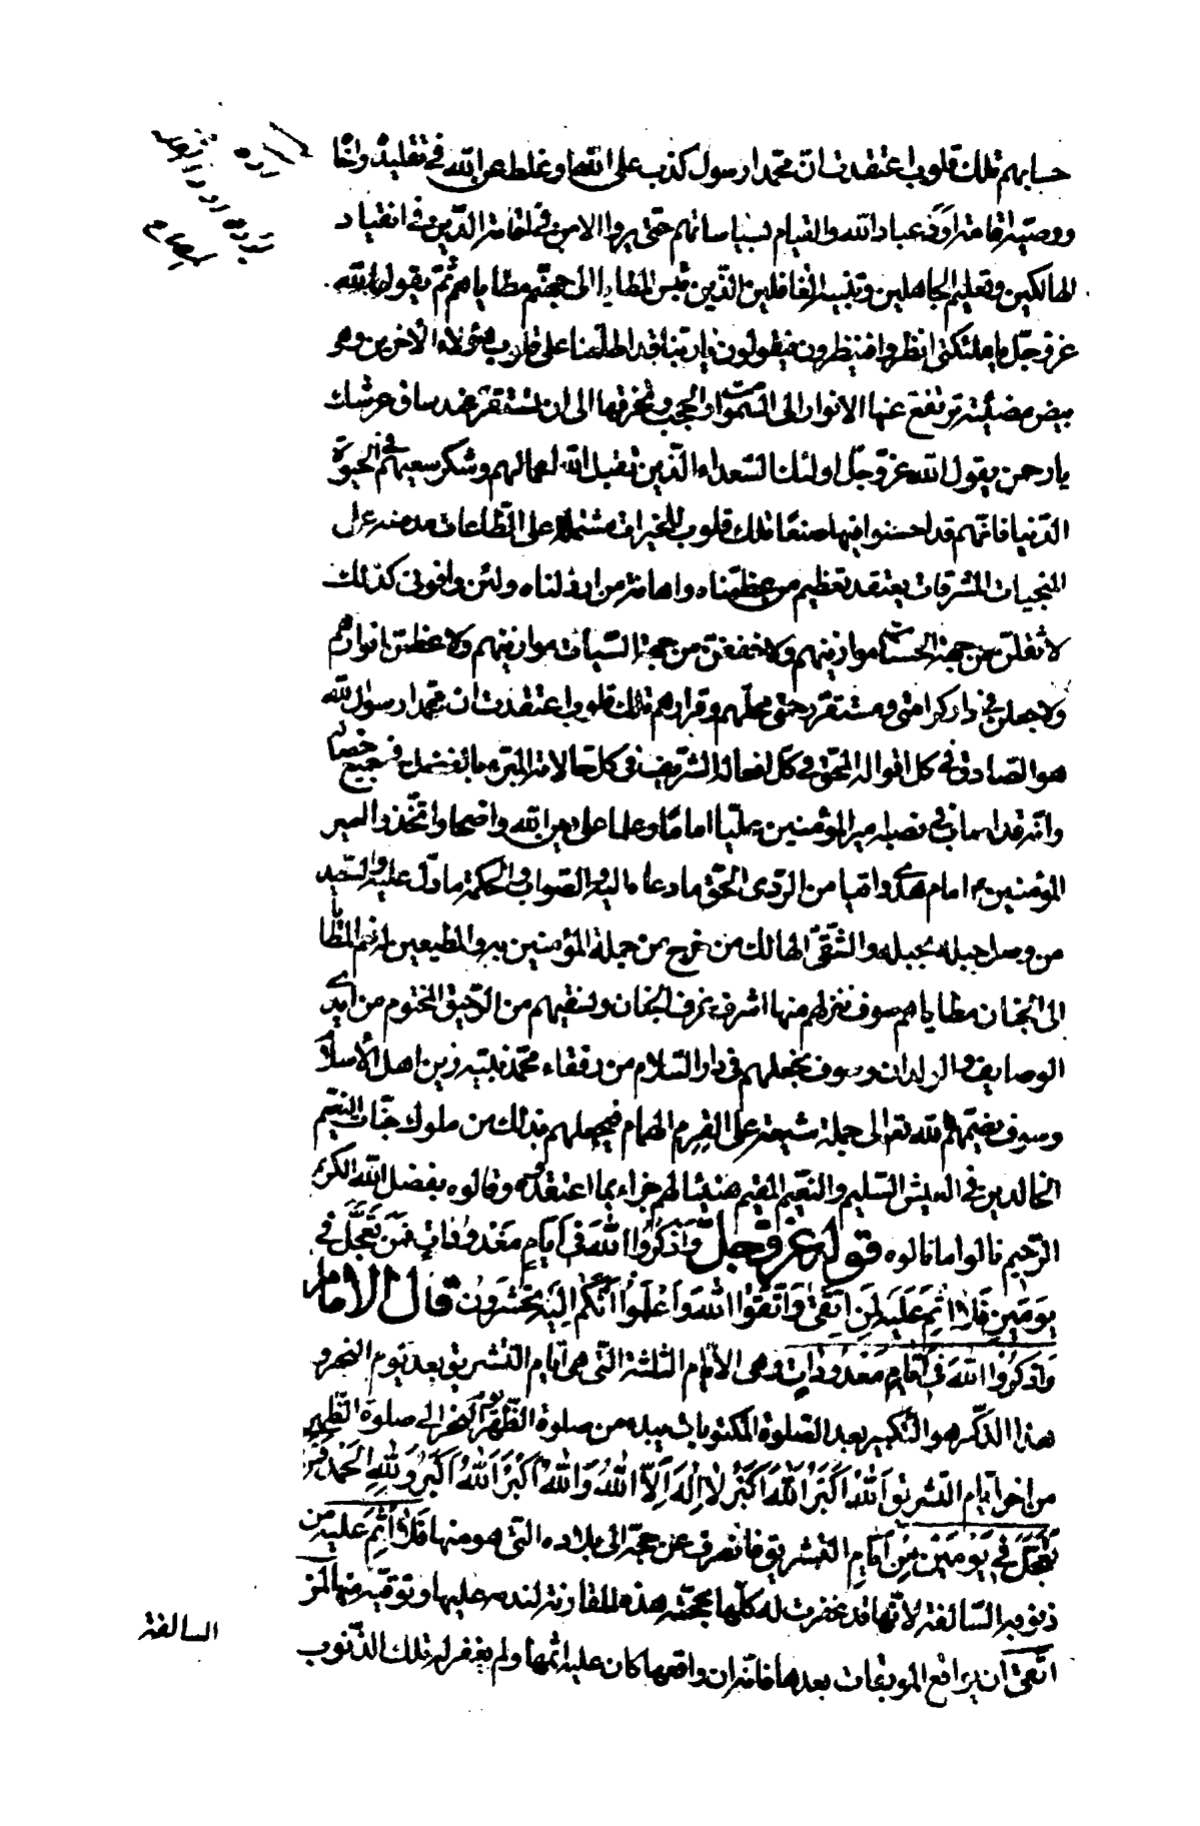 حسابهم تلك قلوب اعتقدت انّ محمدا رسول كذب على الله او غلط عن الله في تقليده واخا
ووصيّه اقامة اود عباد الله والقيام بسياساتهم حتى يروا الامن في اقامة الدّين في انقياد
الهالكين وتعليم الجاهلين وتنبيه الغافلين الّذين بئس المطايا الى جهنّم مطاياهم ثمّ يقول الله
عزّ وجلّ يا ملئكتى انظروا فينظرون فيقولون يا ربّنا قد اطّلعنا على قلوب هؤلاء الآخرين وهى
بيض مضيئة ترتفع عنها الانوار الى السموات والحجب وتخرقها الى ان تستقرّ عند ساق عرشك
يا رحمن يقول الله عزّ وجلّ اولئك السّعداء الّذين تقبل الله اعمالهم وشكر سعيهم في الحيوة
الدّنيا فانّهم قد احسنوا فيها صنعًا تلك قلوب للخيرات مشتملة على الطّاعات مدمنة على
المنجيات المشرفات يعتقد تعظيم من عظّمناه واهانة من ارذلناه ولئن وافونى كذلك
لاثقلنّ من جهة الحسنات موازينهم ولاخفّفنّ من جهة السّيأت موازينهم ولاعظمنّ انوارهم
ولاجعلنّ في دار كرامتى ومستقرّ رحمتى محلّهم وقرارهم تلك قلوب اعتقدت ان محمّدا رسول الله
هو الصادق في كل اقواله المحقّ في كلّ افعاله الشّريف في كلّ حالاته المبرّز بالفضل في جميع خصاله
وانّه قد اصاب في نصبه امير المؤمنين عليّا اماما وعلما على دين الله واضحا واتّخذوا امير
المؤمنين ع امام هدى واقيا من الردى الحقّ ما دعا اليه والصواب والحكمة ما دلّ عليه والسّعيد
من وصل حبله بحبله والشّقىّ الهالك من خرج من جملة المؤمنين به والمطيعين له نعم المطايا
الى الجنان مطاياهم سوف ننزلهم منها اشرف غرف الجنان ونسقيهم من الرّحيق المختوم من ايدى
الوصايف والولدان وسوف نجعلهم في دار السّلام من رفقاء محمّد نبيّه زين اهل الأسلام
وسوف يضمّهم الله تعالى الى جملة شيعة علىّ القرم الهمام فيجعلهم بذلك من ملوك جنّات النعيم
الخالدين في العيش السّليم والنّعيم المقيم هنيئا لهم جزاء بما اعتقدوه وقالوه بفضل الله الكريم
الرّحيم نالوا ما نالوه قوله عزّ وجلّ وَاذْكُرُوا اللهَ فى اَيّامٍ مَعْدُوداتٍ فَمَنْ تَعَجَّلَ في
يَوْمَيْنِ فَلا اِثْمَ عَلَيْهِ لِمَنِ اتَّقى وَاتَّقُوا اللهَ وَاعْلَمُوا اَنَّكُم اِلَيْهِ تُحْشَرُونَ قال الامام
وَاذْكُرُوا اللهَ فى اَيّامٍ مَعْدُوداتٍ وهى الايّام الثلثة الّتى هى ايّام التّشريق بعد يوم النحر و
هذا الذّكر هو التّكبير بعد الصّلوة المكتوبات يبدء من صلوة الظّهر يوم النحر الى صلوة الظّهر
من اخر ايّام التّشريق اَللهُ اَكْبَرُ اَللهُ اَكْبَرُ لا اِلهَ اِلاَّ اللهُ وَاللهُ اَكْبَرُ اَللهُ اَكْبَرُ وَللهِ الحَمْدُ فَمَنْ
تَعَجَّلَ في يَوْمَيْنِ مِنْ اَيّامِ التّشريق فانصرف عن حجّه الى بلاده الّتى هو منها فَلا اِثْمَ عَلَيْهِ من
ذنوبه السّالفة لانّها قد غفرت له كلّها بحجّته هذه المقارنة لندمه عليها وتوقّيه منها لمن
اتّقى ان يواقع الموبقات بعدها فانّه ان واقعها كان عليه اثمها ولم يغفر له تلك الذّنوب
السالفة